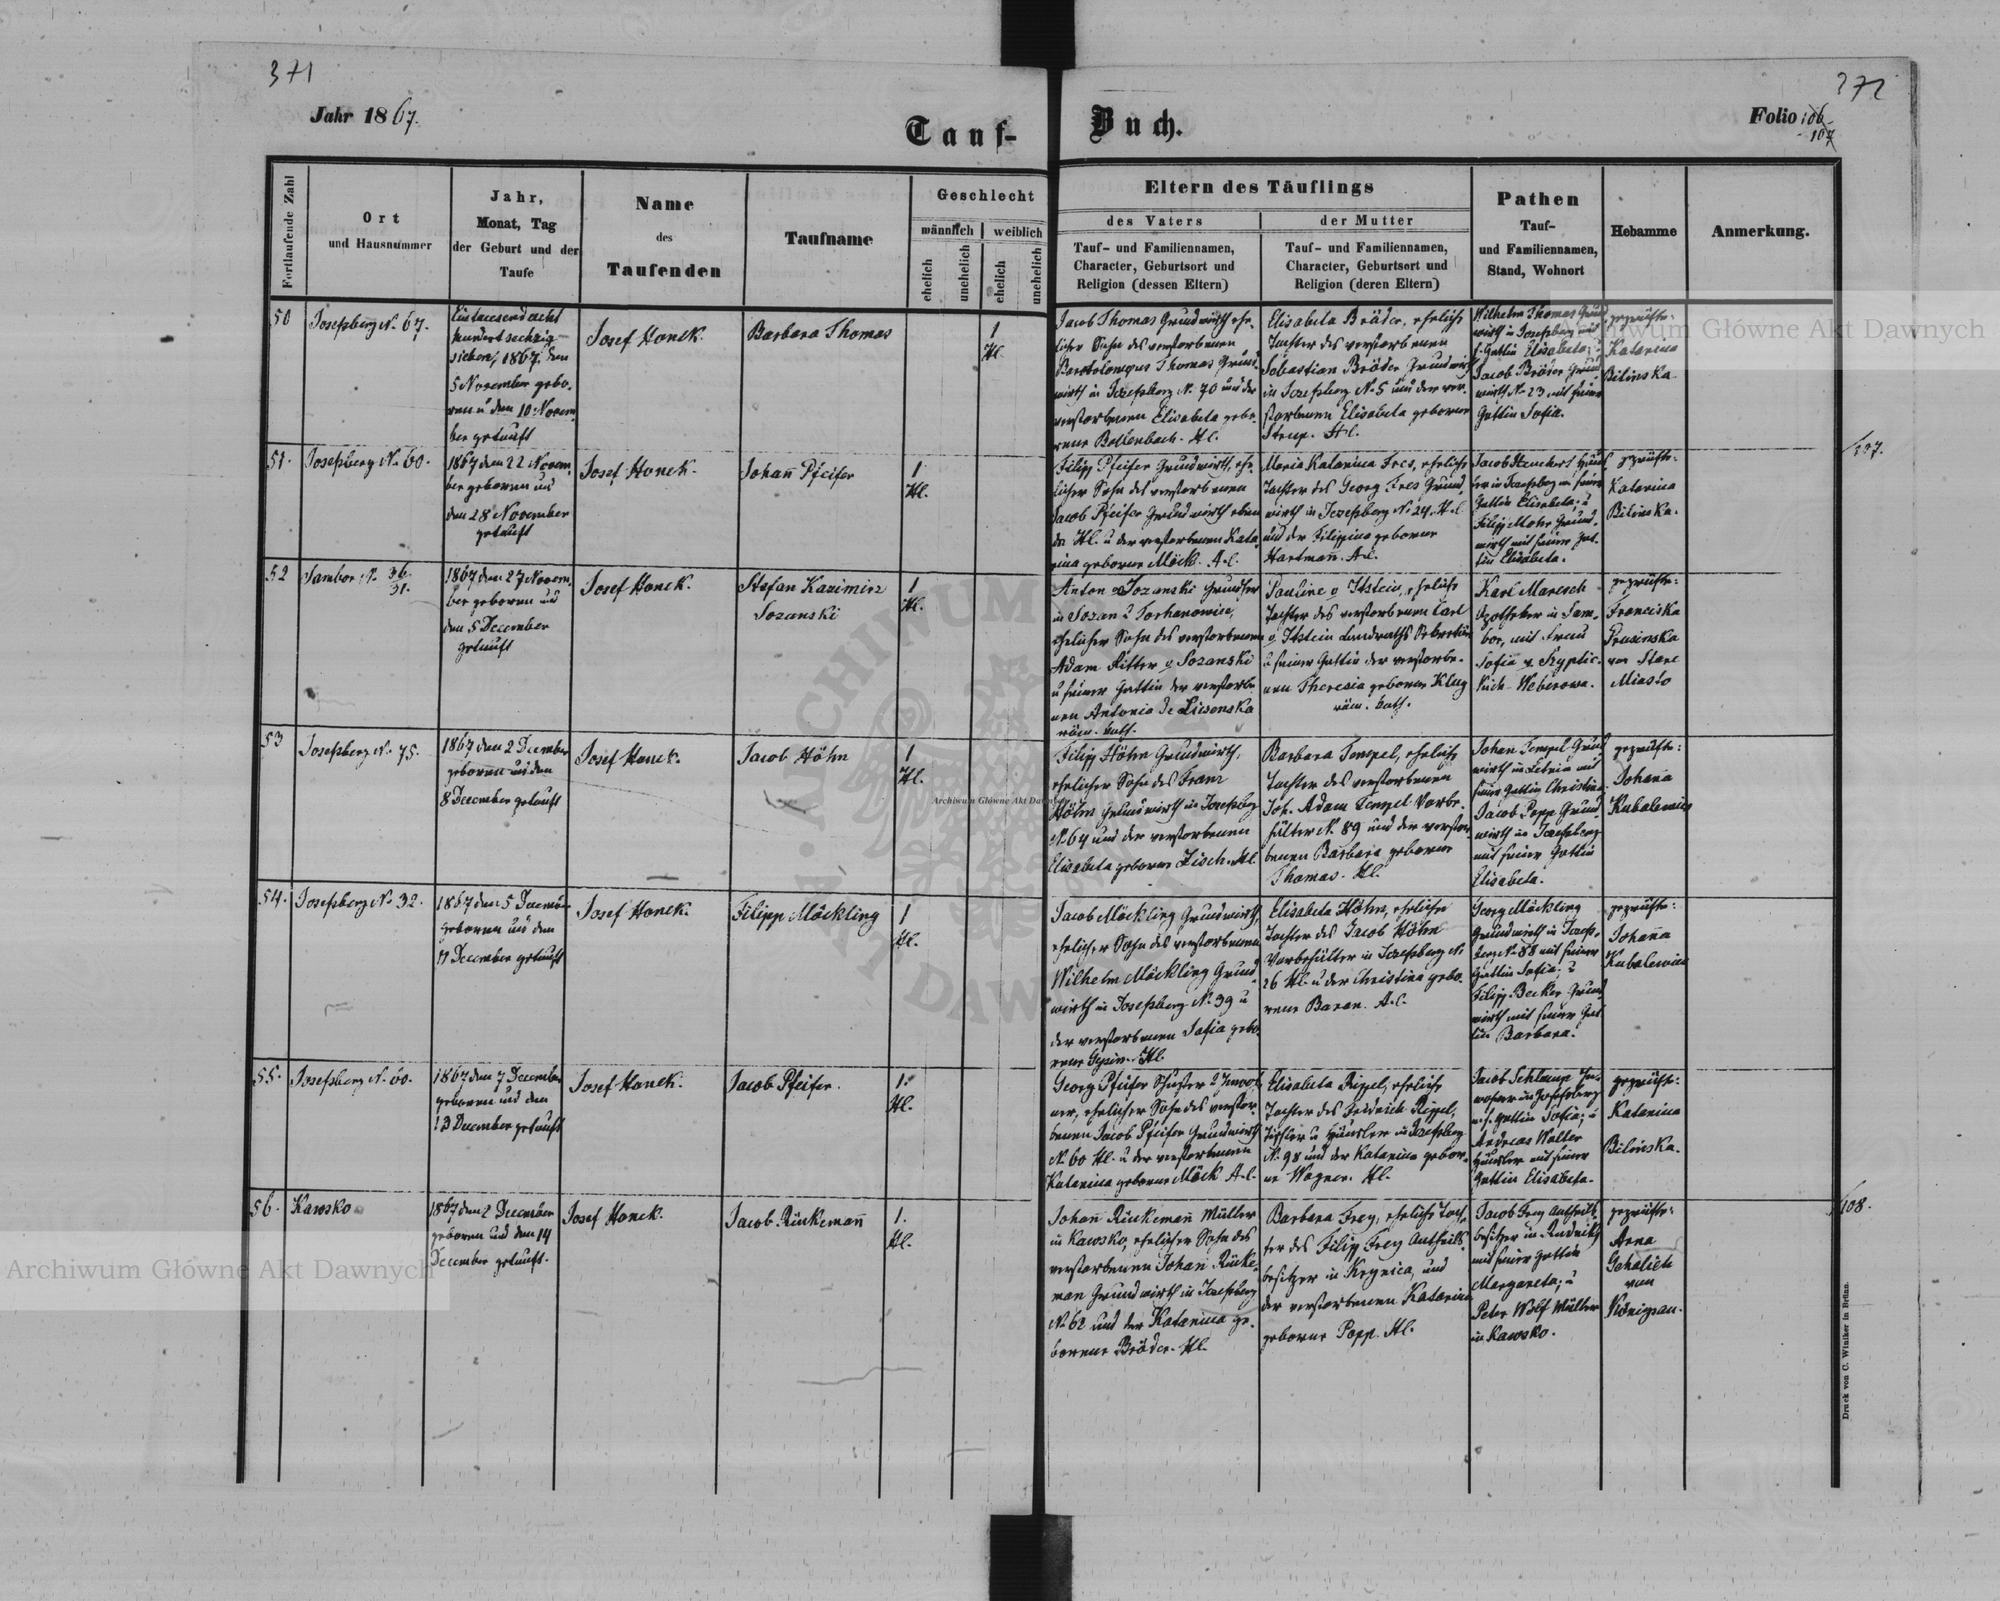 371
372
Jahr 1867.
Tauf-
Buch.
Folio 106
107
Fortlaufende Zahl
Ort
und Hausnummer
Jahr,
Monat, Tag
der Geburt und der
Taufe
Name
des
Taufenden
Taufname
Geschlecht
männlich
weiblich
ehelich
unehelich
ehelich
unehelich
Eltern des Täuflings
des Vaters
Tauf- und Familiennamen,
Character, Geburtsort und
Religion (dessen Eltern)
der Mutter
Tauf- und Familiennamen,
Character, Geburtsort und
Religion (deren Eltern)
Pathen
Tauf-
und Familiennamen,
Stand, Wohnort
Hebamme
Anmerkung.
50
Josefsberg N. 67.
Eintausend acht
hundert sechzig
sieben, 1867 den
5 November gebo-
ren u den 10 Novem
ber getauft
Josef Hanek.
Barbara Thomas
1
Hl.
Jacob Thomas Grundwirth ehe-
licher Sohn des verstorbenen
Bartolomeus Thomas Grund-
wirth in Josefsberg N. 70 und der
verstorbenen Elisabeta gebo-
rene Bollenbach. Hl.
Elisabeta Bräder, eheliche
Tochter des verstorbenen
Sebastian Bräder Grundwirth
in Josefsberg N. 5 und der ver-
storbenen Elisabeta geborene
Hl.
Wilhelm Thomas Grund
wirth in Josefsberg mit
s. Gattin Elisabeta; u
Jacob Bräder Grund
wirth N. 23 mit seiner
Gattin Sofia.
geprüfte:
Katarina
Bilinska
51.
Josefsberg N. 60.
1867 den 22 Novem-
ber geboren und
den 28 November
getauft
Josef Hanek.
Johañ Pfeifer
1
Hl.
Filipp Pfeifer Grundwirth, ehe-
licher Sohn des verstorbenen
Jacob Pfeifer Grundwirth eben
da Hl. u der verstorbenen Kata-
rina geborene Möck. A.C.
Maria Katarina Fres, eheliche
Tochter des Georg Fres Grund-
wirth in Josefsberg N. 24. H.C.
und der Filippina geborene
Hartmañ. A.C.
Gattin Elisabeta; u
Filipp Mohr Grund-
wirth mit seiner Gat-
tin Elisabeta.
geprüfte:
Katarina
Bilinska.
127.
52
Sambor N. 36
31.
1867 den 27 Novem-
ber geboren und
den 5 December
getauft
Josef Hanek.
Stefan Kazimirz
Sozanski
1
Hl.
Anton v Sozanski Grundherr
in Sozan u Torhanowice,
ehelicher Sohn des verstorbenen
Adam Ritter v Sozanski
u seiner Gattin der verstorbe-
nen Antonia
röm. kath.
Pauline v Itstein, eheliche
Tochter des verstorbenen Carl
v. Itstein Landraths Sekretär
u seiner Gattin der verstorbe-
nen Theresia geborene Klug
röm. kath.
Karl Maresch
Apotheker in Sam-
bor, mit Frau
Sofia v.
geprüfte:
Franciska
Prusinska
von Stare
Miasto
53
Josefsberg N. 75.
1867 den 2 December
geboren und den
8 December getauft
Josef Hanek.
Jacob Höhn
1
Hl.
Filipp Höhn Grundwirth,
ehelicher Sohn des Franz
Höhn Grundwirth in Josefsberg
N. 64 und der verstorbenen
Elisabeta geborene Zisch. Hl.
Barbara Tempel, eheliche
Tochter des verstorbenen
Joh. Adam Tempel Vorbe-
hälter N. 89 und der verstor-
benen Barbara geborene
Thomas. Hl.
Johan Tempel Grund
wirth in Letnia mit
seiner Gattin Christina
Jacob Popp Grund
wirth in Josefsberg
mit seiner Gattin
Elisabeta.
geprüfte:
Johaña
Kubalewicz
54.
Josefsberg N. 32.
1867 den 5 December
geboren und den
11 December getauft
Josef Hanek.
Filipp Möckling
1
Hl.
Jacob Möckling Grundwirth,
ehelicher Sohn des verstorbenen
Wilhelm Möckling Grund-
wirth in Josefsberg N. 39 u
der verstorbenen Sofia gebo-
rene Hl.
Elisabeta Höhn, eheliche
Tochter des Jacob Höhn
Vorbehälter in Josefsberg N.
26 Hl. u der Christina gebo-
rene Baron. A.C.
Georg Möckling
Grundwirth in Josefs-
berg N. 88 mit seiner
Gattin Sofia; u
Filipp Becker Grund
wirth mit seiner Gat-
tin Barbara.
geprüfte:
Johaña
Kubalewicz
55.
Josefsberg N. 60.
1867 den 7 December
geboren und den
13 December getauft
Josef Hanek.
Jacob Pfeifer.
1.
Hl.
Georg Pfeifer Schuster u Inwoh-
ner, ehelicher Sohn des verstor-
benen Jacob Pfeifer Grundwirth
N. 60 Hl. u der verstorbenen
Katarina geborene Möck A.C.
Elisabeta Rippel, eheliche
Tochter des Fridrich Rippel,
Tischler u Häusler in Josefsberg
N. 98 und der Katarina gebor-
ne Wagner. Hl.
Jacob Schlamp In-
wohner in Josefsberg
m. s. Gattin Sofia; u
Andreas Walter
Häusler mit seiner
Gattin Elisabeta.
geprüfte:
Katarina
Bilinska.
56.
Kawsko
1867 den 2 December
geboren und den 14
December getauft.
Josef Hanek.
Jacob Rinkemañ
1.
Hl.
Johañ Rinkemañ Müller
in Kawsko, ehelicher Sohn des
verstorbenen Johañ Rinke-
man Grundwirth in Josefsberg
N. 62 und der Katarina ge-
borene Bräder. Hl.
Barbara Frey, eheliche Toch-
ter des Filipp Frey Antheils-
besitzer in Krynica, und
der verstorbenen Katarina
geborne Popp. Hl.
Jacob Frey Antheils
besitzer in
mit seiner Gattin
Margareta; u
Peter Wolf Müller
in Kawsko.
geprüfte:
Anna
von
Königsau.
108.
Druck von C. Winiker in Brünn.
Archiwum Główne Akt Dawnych
Archiwum Główne Akt Dawnych
Archiwum Główne Akt Dawnych